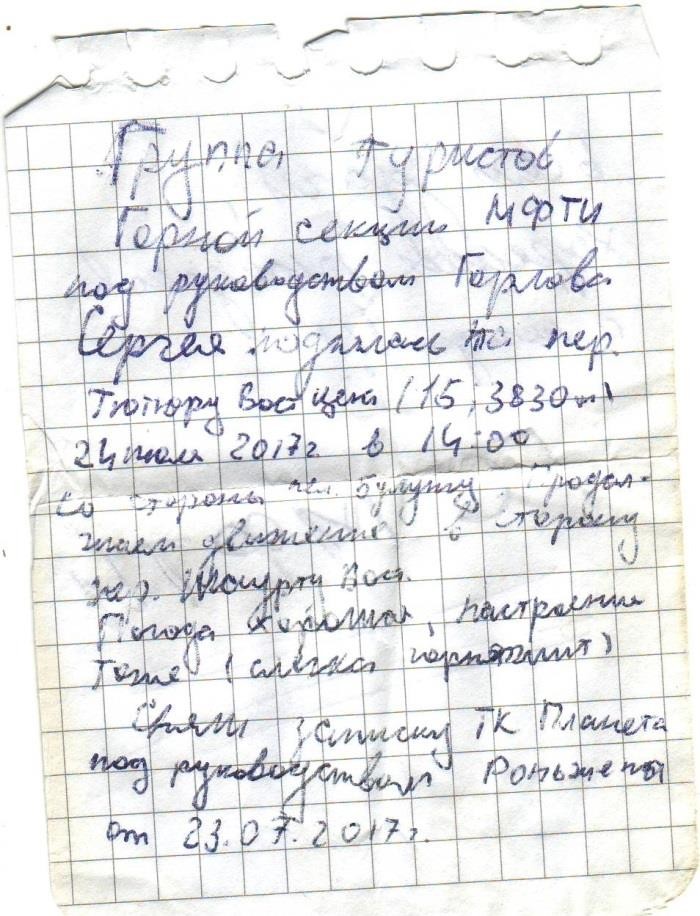 Группа туристов
Горной секции МФТИ
под руководством Горлова
Сергея поднялась на пер.
Тютюрю Вост. (1Б, 3830м)
24 июля 2017г в 14:00
со стороны Булунгу. Продол-
жаем движение в сторону
пер. Вост.
Погода хорошая, настроение
тоже (слегка горняшит)
Сняли записку ТК Планета
под руководством
от 23.07.2017г.